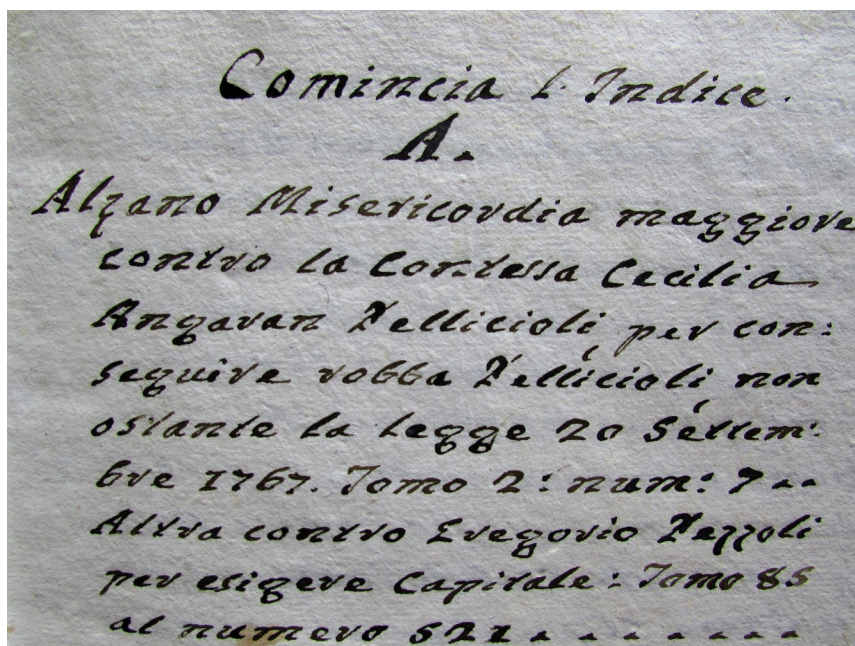 Comincia l'Indice.
A.
Alzano Misericordia maggiore
contro la Contessa Cecilia
Angaran Pelliccioli, per con:
seguire robba Pelliccioli, non
ostante la legge 20 Settem:
bre 1767. Tomo 2: num: 7 - -
Altra contro Gregorio Pezzoli
per esigere Capitale: Tomo 85
al numero 521 - - - - - - - -